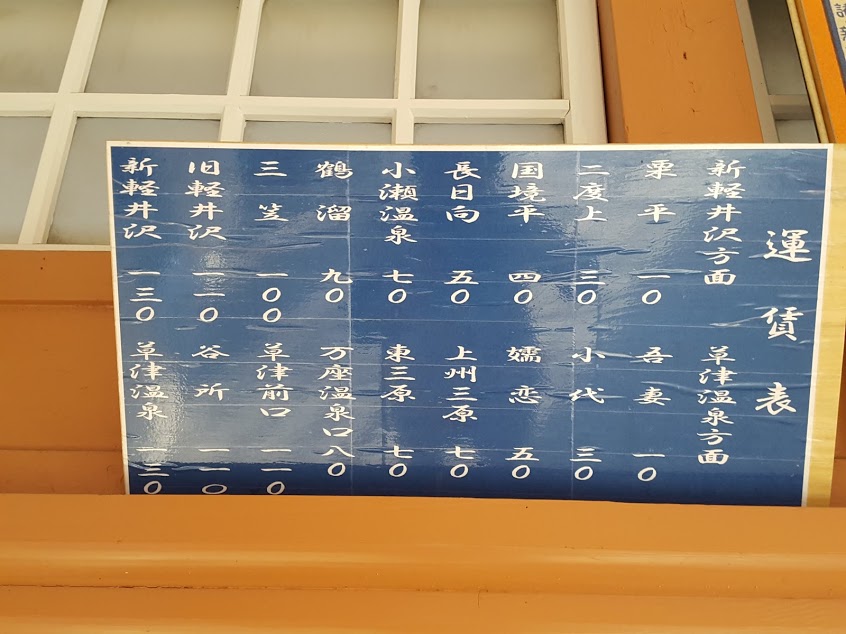 運賃表
新軽井沢方面
栗平 一〇
二度上 三〇
国境平 四〇
長日向 五〇
小瀬温泉 七〇
鶴溜 九〇
三笠 一〇〇
旧軽井沢 一一〇
新軽井沢 一三〇
草津温泉方面
吾妻 一〇
小代 三〇
嬬恋 五〇
上州三原 七〇
東三原 七〇
万座温泉口 八〇
草津前口 一一〇
谷所 一一〇
草津温泉 一三〇